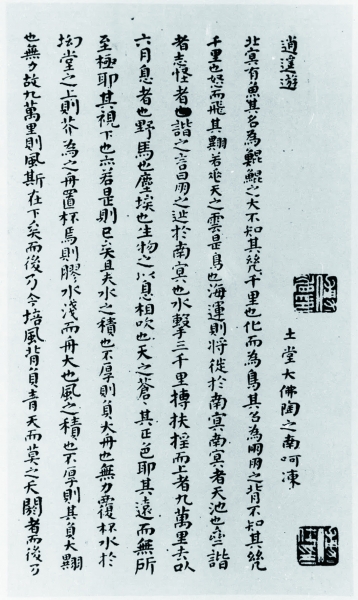 逍遥遊
土堂大佛陶之南呵凍
北冥有魚其名為鯤鯤之大不知其幾千里也化而為鳥其名為朋朋之背不知其幾
千里也怒而飛其翼若垂天之雲是鳥也海運則將徙於南冥南冥者天池也齊諧
者志怪者也諧之言曰朋之徙於南冥也水擊三千里搏扶搖而上者九萬里去以
六月息者也野馬也塵埃也生物之以息相吹也天之蒼〻其正色耶其遠而無所
至極耶其視下也亦若是則已矣且夫水之積也不厚則負大舟也無力覆杯水於
坳堂之上則芥為之舟置杯焉則膠水淺而舟大也風之積也不厚則其負大翼
也無力故九萬里則風斯在下矣而後乃今培風背負青天而莫之夭閼者而後乃